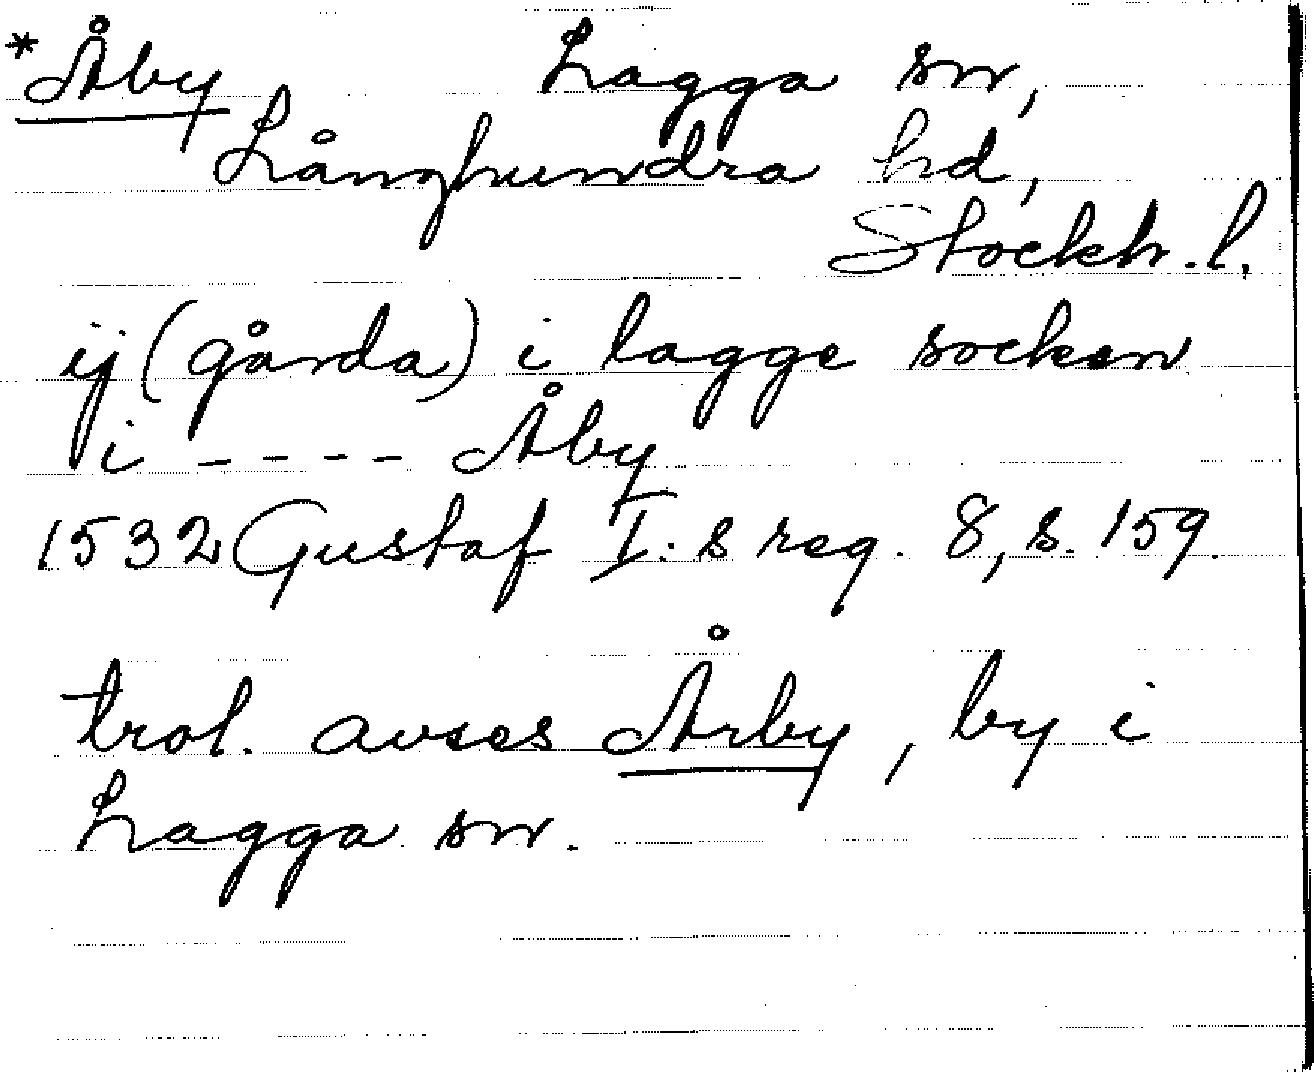 *Åby Lagga sn,
Långhundra hd,
Stockh. l.
ij (gårda) i lagge socken
i - - - - Åby
1532 Gustaf I:s reg. 8, s. 159.
trol. avses Årby, by i
Lagga sn.